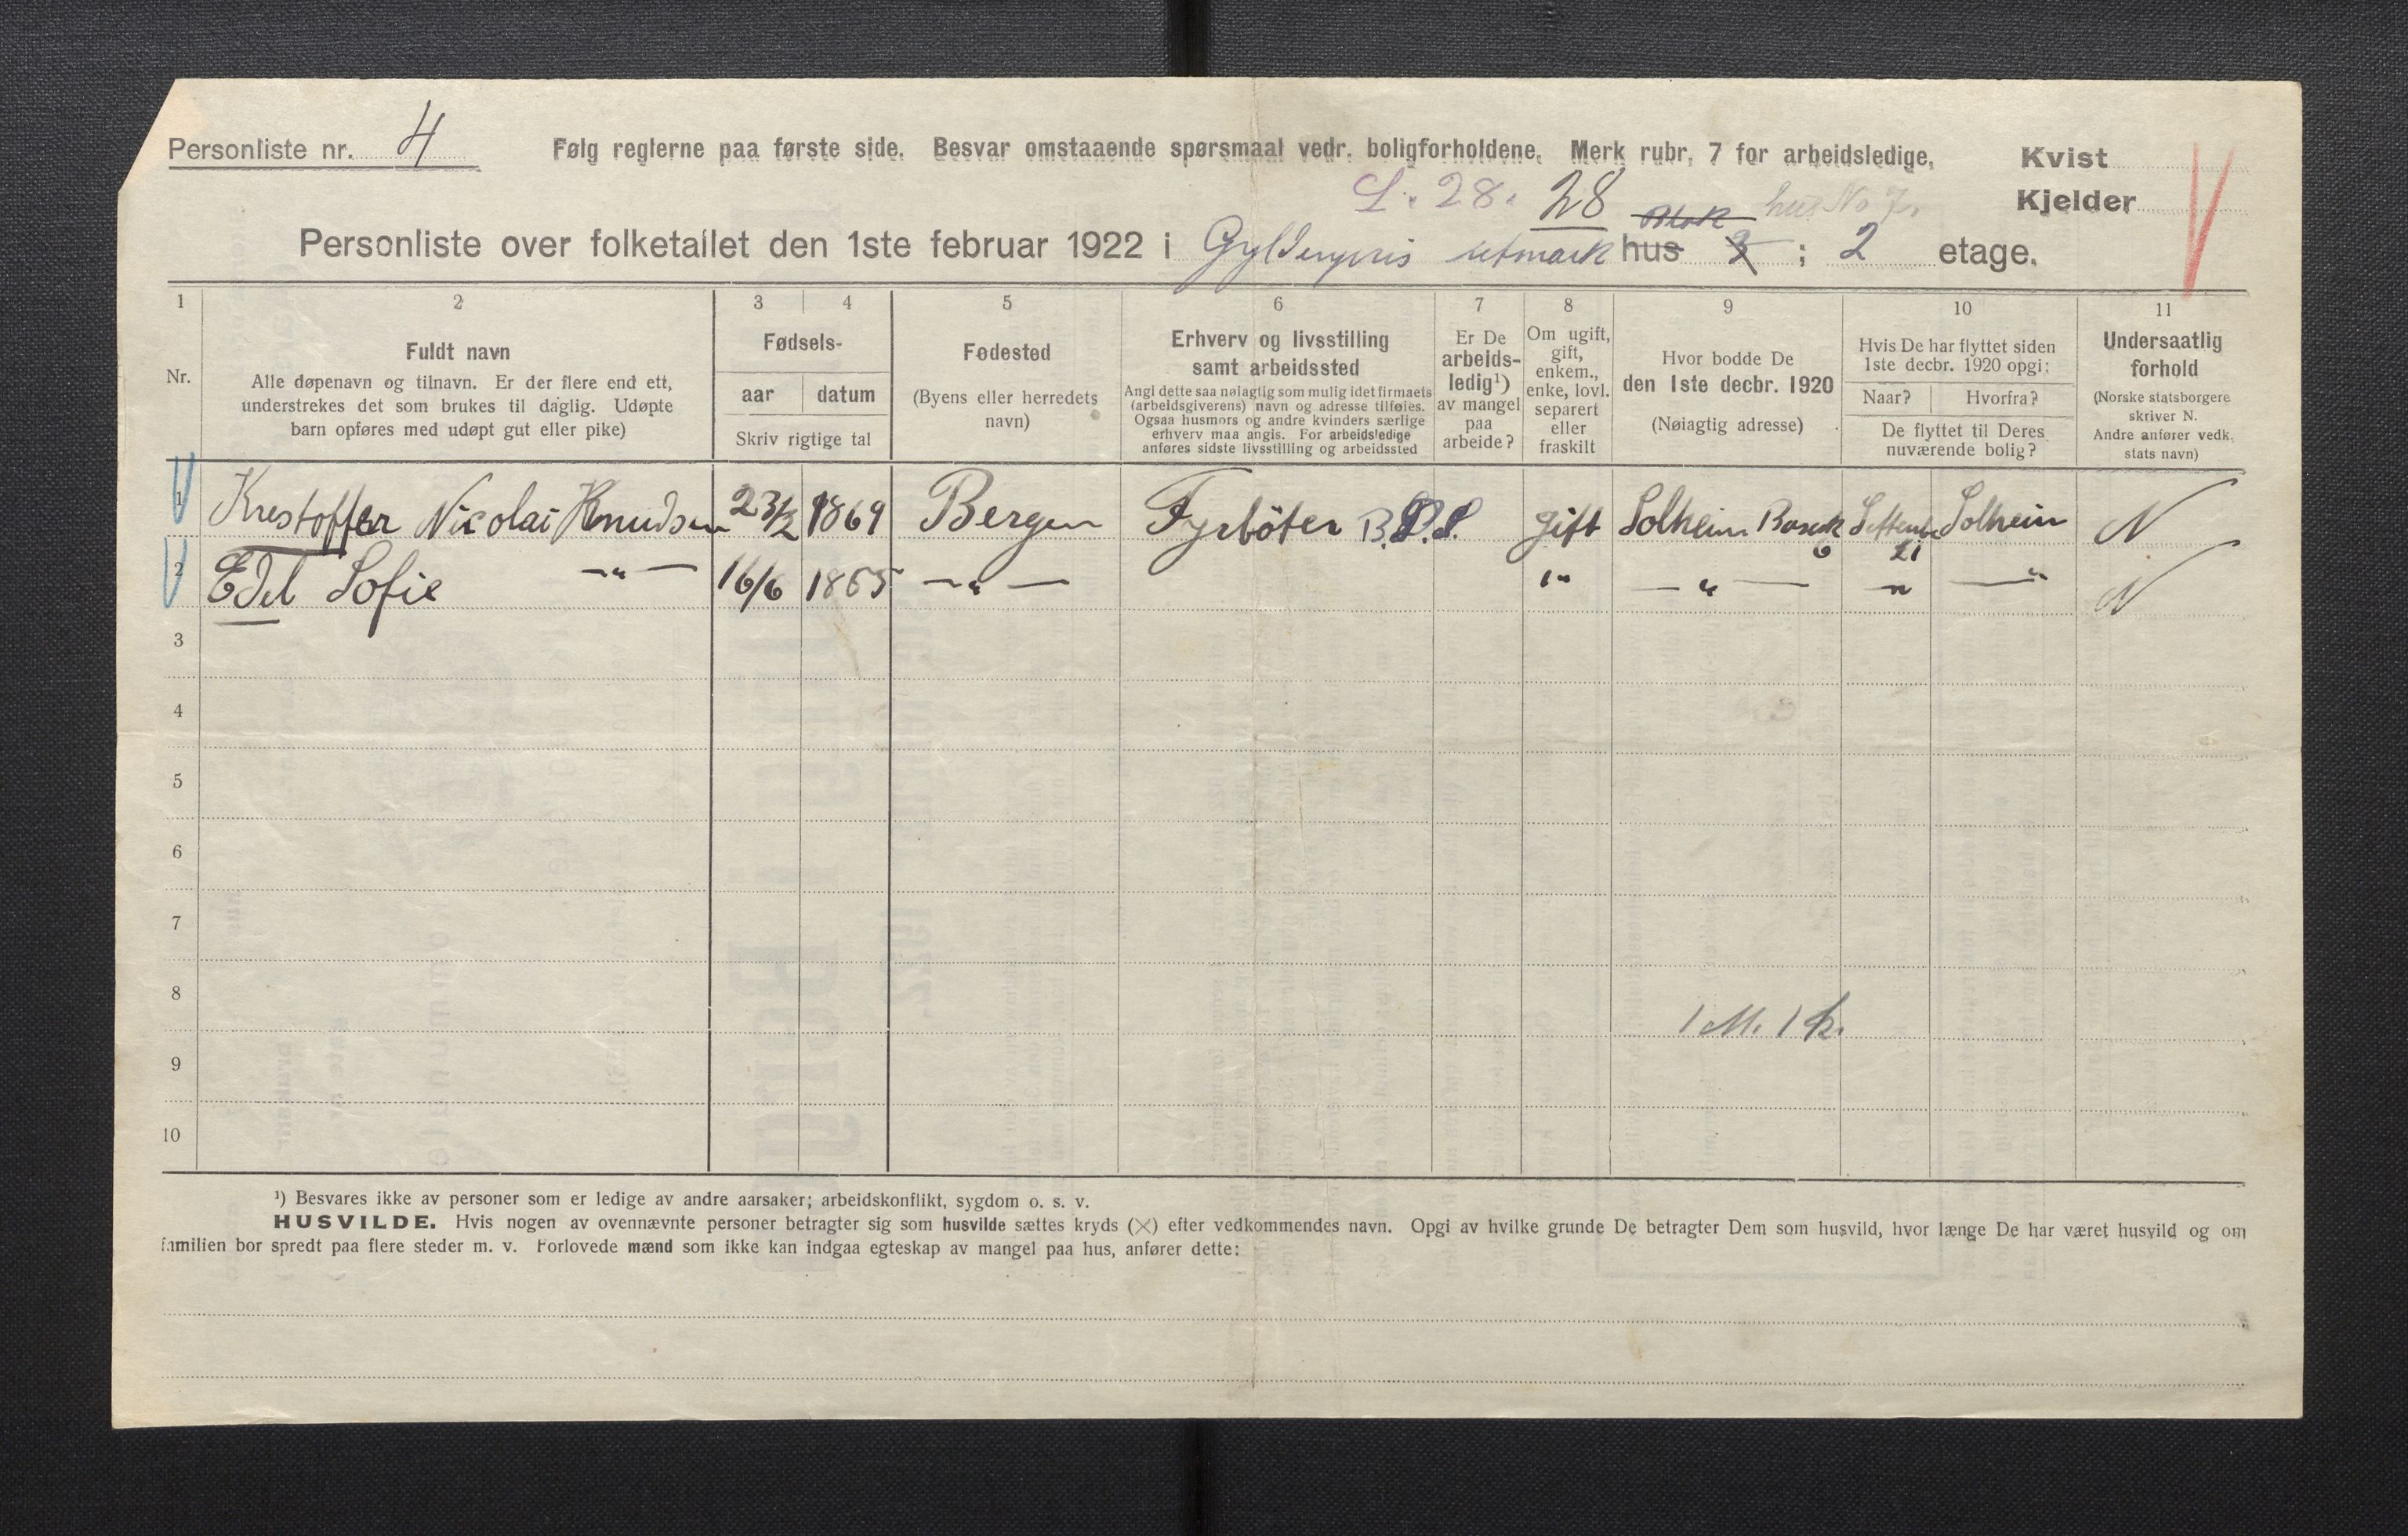 Personliste nr. 4 Følg reglerne paa første side. Besvar omstaaende spørsmaal vedr. boligforholdene. Merk rubr. 7 for arbeidsledige. Kvist
L. 28. 28 Blok hus No 7. Kjelder
Personliste over folketallet den 1ste februar 1922 i Gyldenpris utmark hus 3 ; 2 etage.
1 2 3 4 5 6 7 8 9 10 11
Nr.
Fuldt navn
Alle døpenavn og tilnavn. Er der flere end ett,
understrekes det som brukes til daglig. Udøpte
barn opføres med udøpt gut eller pike)
Fødsels-
aar datum
Skriv rigtige tal
Fødested
(Byens eller herredets
navn)
Erhverv og livsstilling
samt arbeidssted
Angi dette saa nøiagtig som mulig idet firmaets
(arbeidsgiverens) navn og adresse tilføies.
Ogsaa husmors og andre kvinders særlige
erhverv maa angis. For arbeidsledige
anføres sidste livsstilling og arbeidssted
Er De
arbeids-
ledig¹)
av mangel
paa
arbeide?
Om ugift,
gift,
enkem.,
enke, lovl.
separert
eller
fraskilt
Hvor bodde De
den 1ste decbr. 1920
(Nøiagtig adresse)
Hvis De har flyttet siden
1ste decbr. 1920 opgi:
Naar? Hvorfra?
De flyttet til Deres
nuværende bolig?
Undersaatlig
forhold
(Norske statsborgere
skriver N.
Andre anfører vedk.
stats navn)
1 Krestoffer Nicolai Knudsen 23/2 1869 Bergen Fyrböter B.D.S. gift Solheim 6 21 Solheim N
2 Edel Sofie —"— 16/6 1865 —"— " —"— " —"— N
3
4
5
6
7
8
1 M. 1 k.
9
10
¹) Besvares ikke av personer som er ledige av andre aarsaker; arbeidskonflikt, sygdom o. s. v.
HUSVILDE. Hvis nogen av ovennævnte personer betragter sig som husvilde sættes kryds (×) efter vedkommendes navn. Opgi av hvilke grunde De betragter Dem som husvild, hvor længe De har været husvild og om
familien bor spredt paa flere steder m. v. Forlovede mænd som ikke kan indgaa egteskap av mangel paa hus, anfører dette: